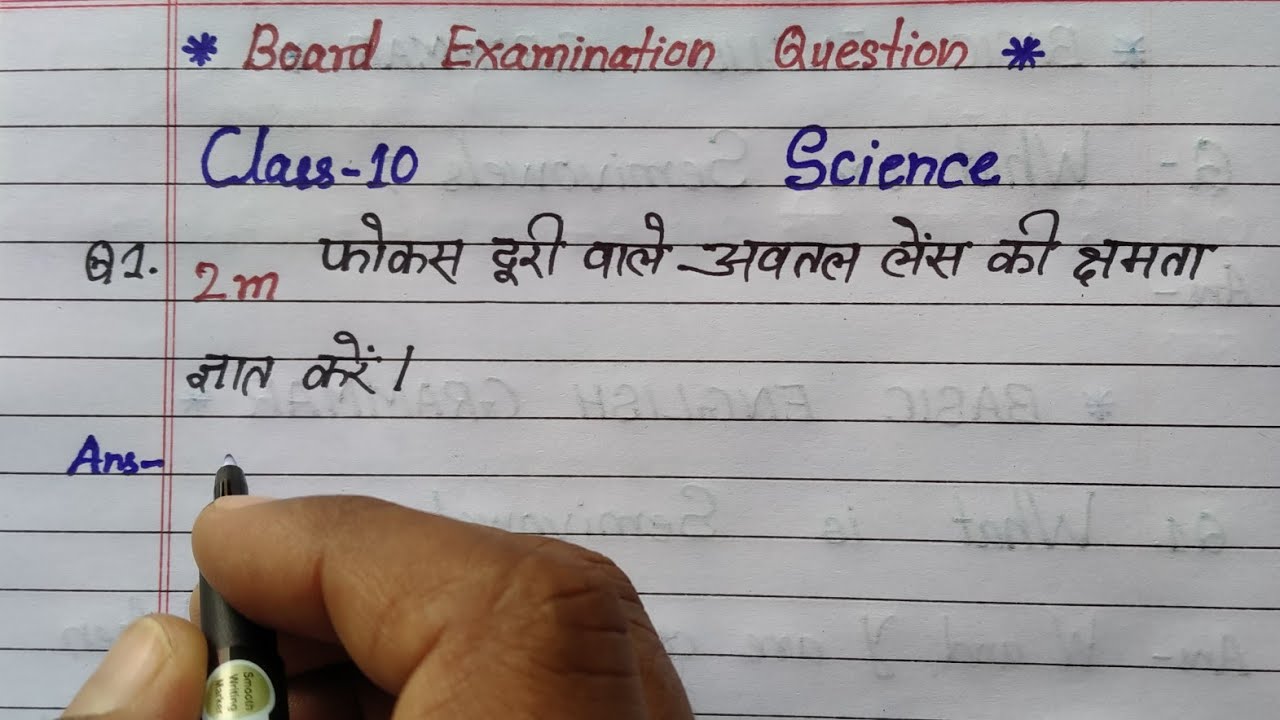 * Board Examination Question *
Class-10 Science
Q1. 2m फोकस दूरी वाले अवतल लेंस की क्षमता
ज्ञात करें।
Ans-
Smooth
Writing
Marker